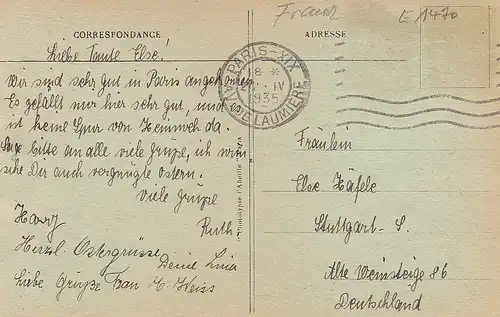 CORRESPONDANCE
Liebe Tante Else!
Wir sind sehr gut in Paris angekommen
Es gefällt mir hier sehr gut, und es
ist keine Spur von Heimweh da.
Sage bitte an alle viele Grüße, ich wün-
sche Dir auch vergnügte Ostern.
Viele Grüße
Ruth
Harry
Herzl. Ostergrüsse
Deine Lina
Liebe Grüße Frau M. Weiss
Phototypie l'Abeille
ADRESSE
E 1470
PARIS-XIX
18
IV
1935
AV. DE LAUMIERE
Fräulein
Else Häfele
Stuttgart-S.
Alte Weinsteige 86
Deutschland